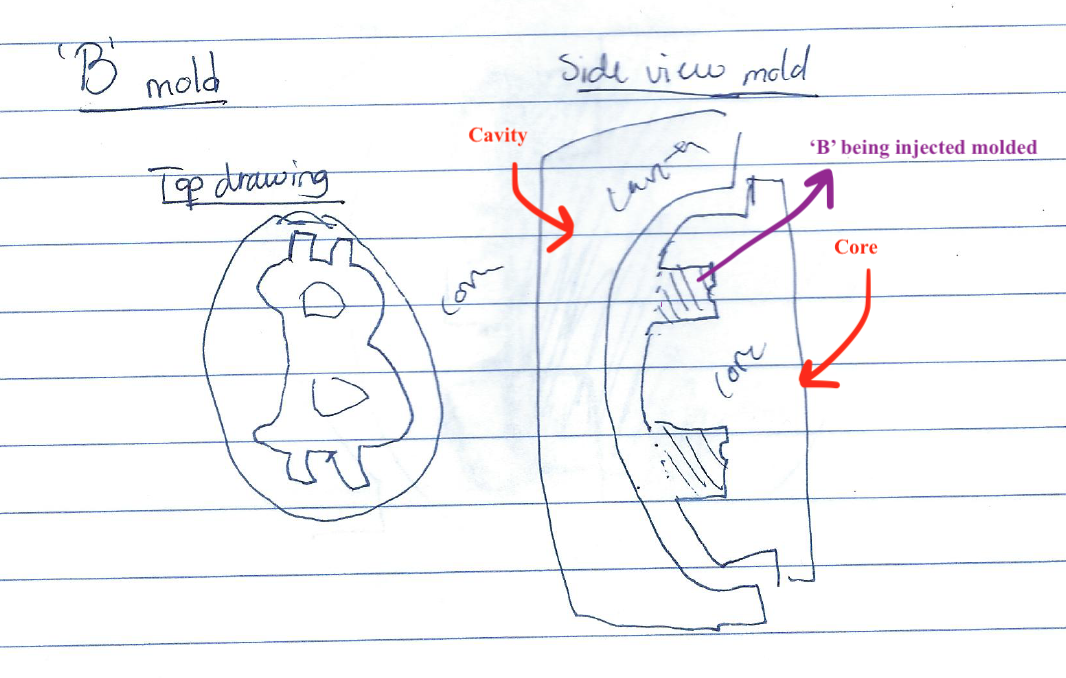 'B' mold
Side view mold
Cavity
'B' being injected molded
Top drawing
Core
core